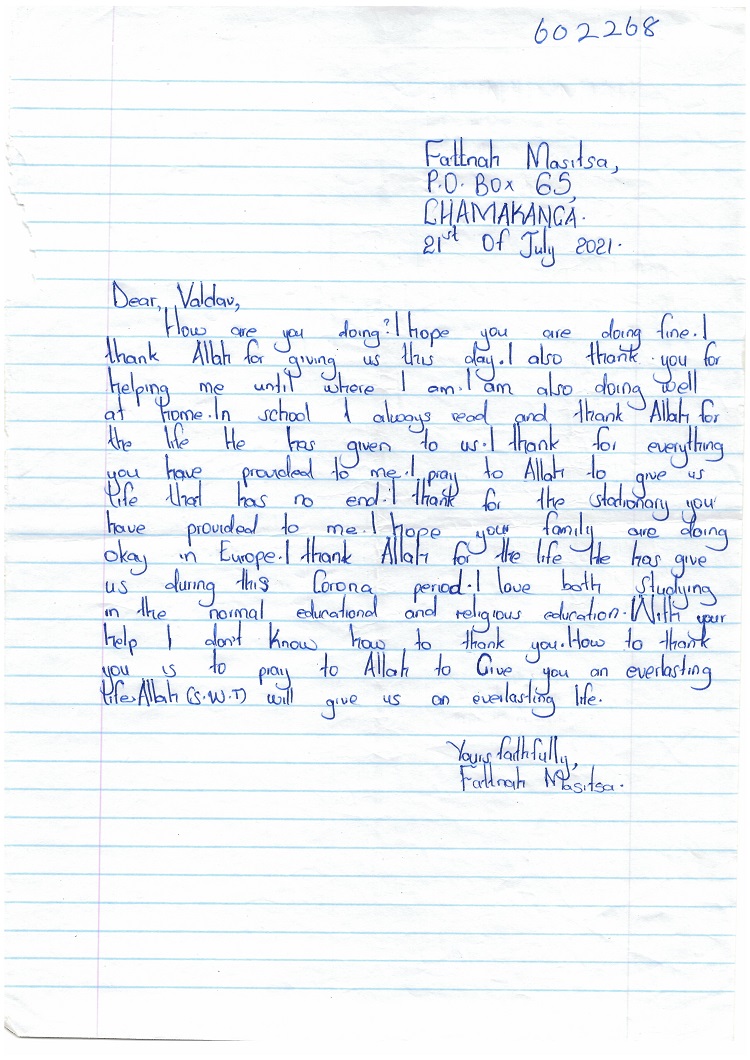 602268
Fattnah Masitsa,
P.O. Box 65,
CHAMAKANGA.
21st Of July 2021.
Dear, Valdav,
How are you doing? I hope you are doing fine. I
thank Allah for giving us this day. I also thank you for
helping me until where I am. I am also doing well
at home. In school I always read and thank Allah for
the life He has given to us. I thank for everything
you have provided to me. I pray to Allah to give us
life that has no end. I thank for the stationary you
have provided to me. I hope your family are doing
okay in Europe. I thank Allah for the life He has give
us during this Corona period. I love both studying
in the normal educational and religious education. With your
help I don't know how to thank you. How to thank
you is to pray to Allah to Give you an everlasting
life. Allah (S.W.T) will give us an everlasting life.
Yours faithfully,
Fattnah Masitsa.